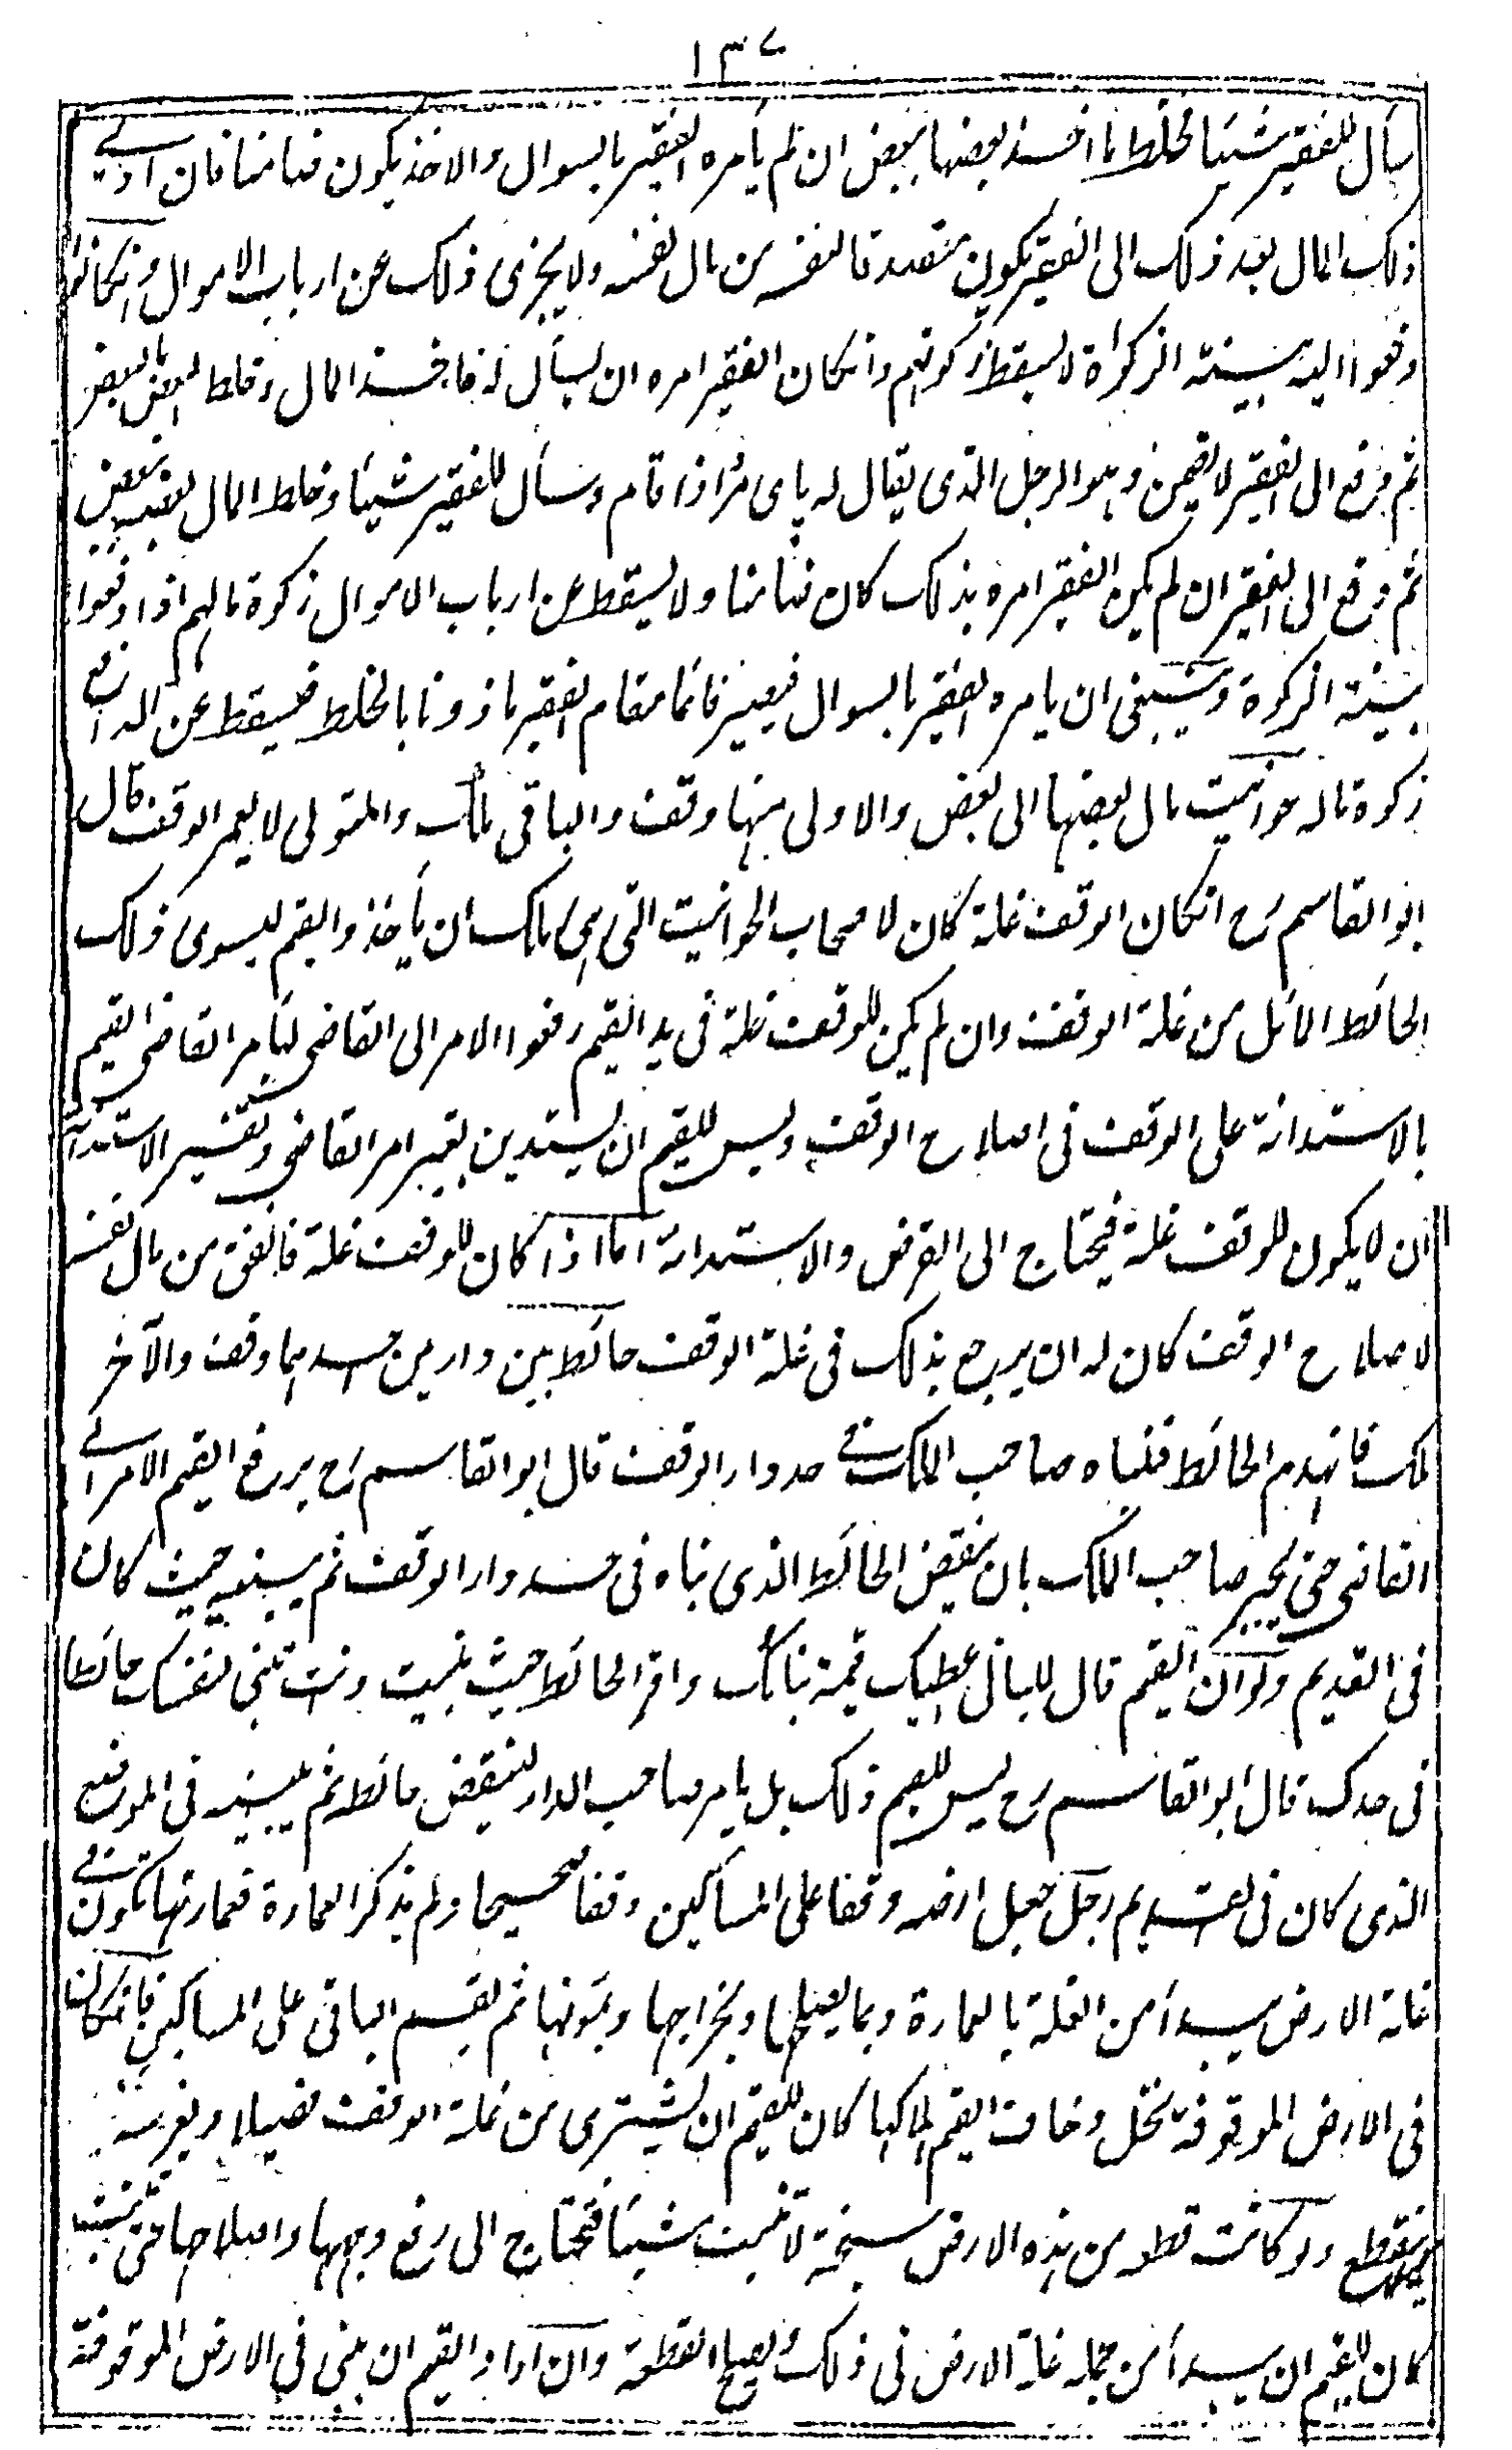 ١٣٧
يسأل للفقير شيئا فخلط ما اخذ بعضها ببعض ان لم يأمره الفقير بالسوال والاخذ يكون ضامنا فان ادى
ذلك المال بعد ذلك الى الفقير يكون متصدقا لنفسه من مال نفسه ولا يجزى ذلك عن ارباب الاموال وانكانوا
دفعوا اليه بنية الزكوة لا يسقط زكوتهم وانكان الفقير امره ان يسأل له فاخذ المال وخلط البعض بالبعض
ثم دفع الى الفقير لا يضمن وهو الرجل الذى يقال له پاى مرد اذا قام وسأل للفقير شيئا وخلط المال بعضه ببعض
ثم دفع الى الفقير ان لم يكن الفقير امره بذلك كان ضامنا ولا يسقط عن ارباب الاموال زكوة مالهم اذا دفعوا
بنية الزكوة وينبغى ان يامره الفقير بالسوال فيصير قائما مقام الفقير ماذونا بالخلط فيسقط عن الدافع
زكوة ماله حوانيت مال بعضها الى بعض والاولى منها وقف والباقى ملك والمتولى لا يعمر الوقف قال
ابو القاسم رح انكان للوقف غلة كان لاصحاب الحوانيت التى هى ملك ان يأخذوا القيم ليسوى ذلك
الحائط المائل من غلة الوقف وان لم يكن للوقف غلة فى يد القيم رفعوا الامر الى القاضى ليأمر القاضى القيم
بالاستدانة على الوقف فى اصلاح الوقف وليس للقيم ان يستدين بغير امر القاضى وتفسير الاستدانة
ان لا يكون للوقف غلة فيحتاج الى القرض والاستدانة اما اذا كان للوقف غلة فانفق من مال نفسه
لاصلاح الوقف كان له ان يرجع بذلك فى غلة الوقف حائط بين دارين احدهما وقف والآخر
ملك فانهدم الحائط فبناه صاحب الملك فى حد دار الوقف قال ابو القاسم رح يرفع القيم الامر الى
القاضى حتى يجبر صاحب الملك بان ينقض الحائط الذى بناه فى حد دار الوقف ثم يبنيه حيث كان
فى القديم ولو ان القيم قال للبانى اعطيك قيمة بنائك واقر الحائط حيث بنيت وانت تبنى لنفسك حائطا
فى حدك قال ابو القاسم رح ليس للقيم ذلك بل يامر صاحب الدار لينقض حائطه ثم يبنيه فى الموضع
الذى كان فى القديم رجل جعل ارضه وقفا على المساكين وقفا صحيحا ولم يذكر العمارة فعمارتها تكون فى
غلة الارض يبدأ من الغلة بالعمارة وبما يصلحها وبخراجها ومؤنها ثم يقسم الباقى على المساكين فان كان
فى الارض الموقوفة نخل وخاف القيم هلاكها كان للقيم ان يشترى من غلة الوقف فصيلا ويغرسه
كيلا ينقطع ولو كانت قطعه من هذه الارض سبخة لا تنبت شيئا فتحتاج الى رفع وجهها واصلاحها حتى تنبت
كان للقيم ان يبدأ من جملة غلة الارض فى ذلك ويصلح القطعة وان اراد القيم ان يبنى فى الارض الموقوفة